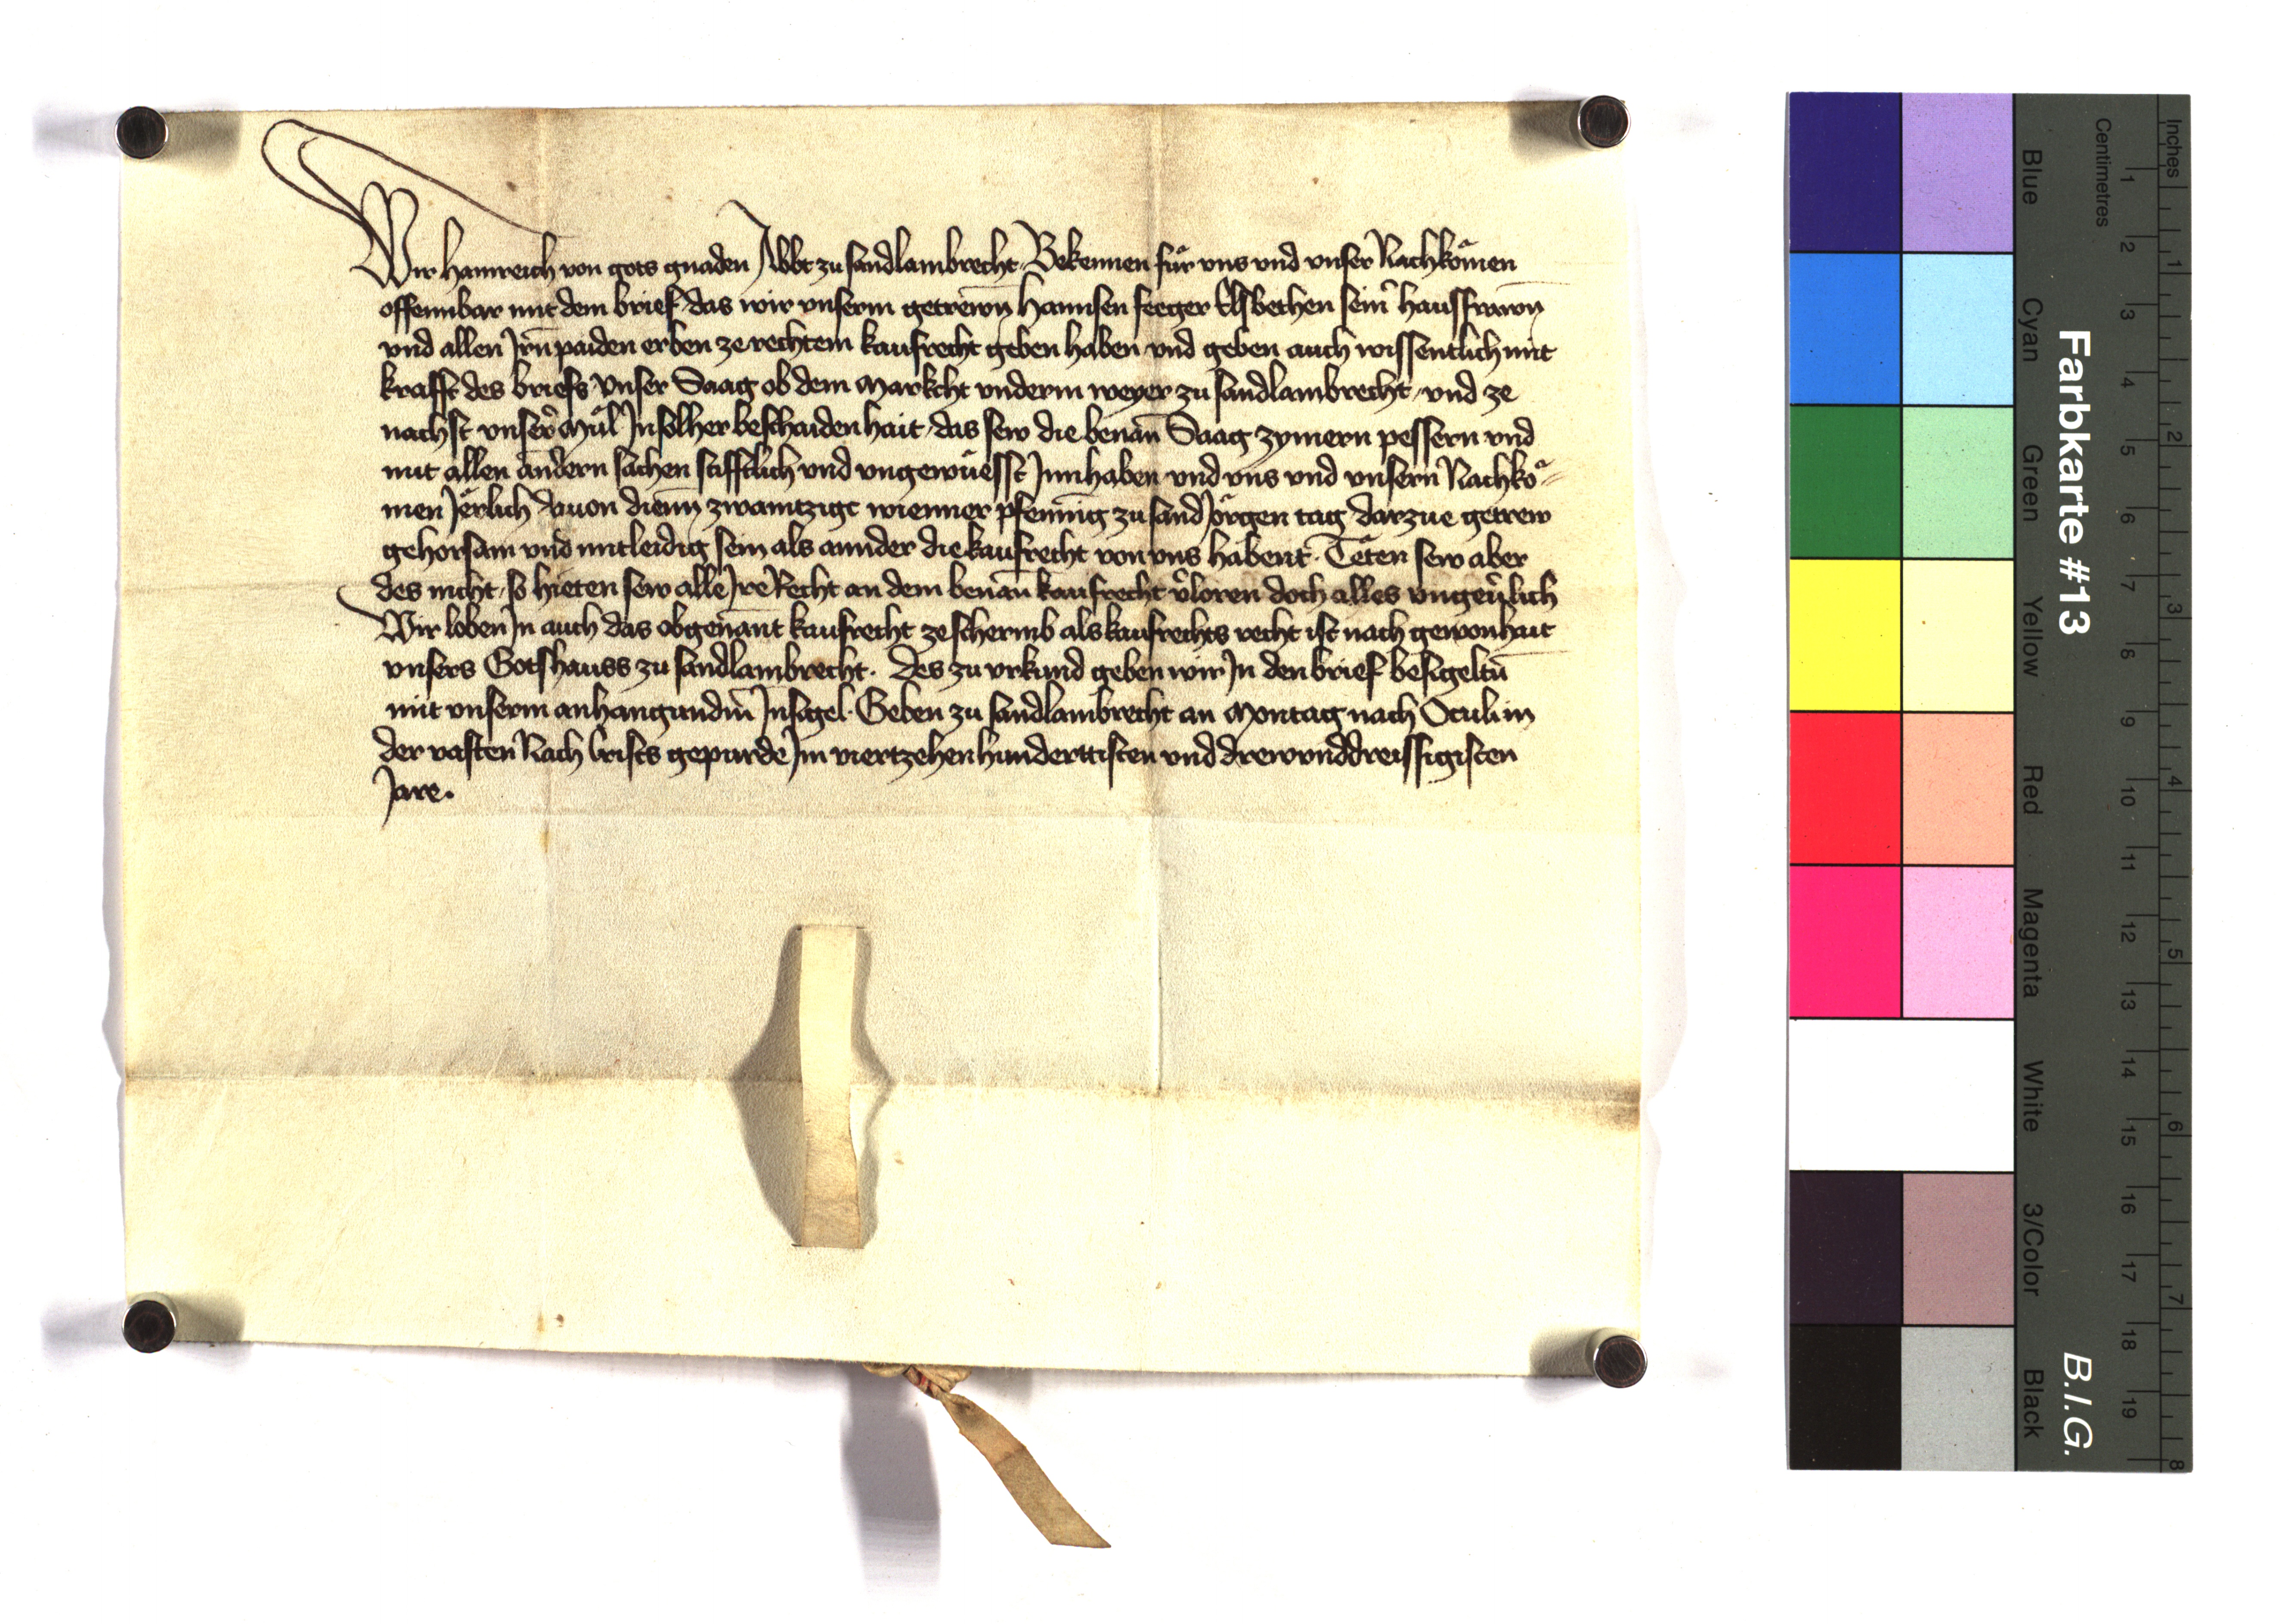 Wir Hainreich von gots gnaden Abbt zu sandlambrecht Bekennen für vns vnd vnser Nachkömen
offennbar mit dem brief das wir vnserm getrewn̄ Hannsen feeger Elsbethen sein̉ hausfrawn̄
vnd allen Jrn̄ paiden erben ze rechtem kaufrecht geben haben vnd geben auch wissentlich mit
krafft des briefs vnser Saag ob dem Markcht vnderm weyer zu sandlambrecht vnd ze
nachst vnser̉ Mül Jn solher beschaidenhait das sew die benan̄ Saag zymern pessern vnd
mit allen andern sachen stifftlich vnd vngewüesst Jnnhaben vnd vns vnd vnsern Nachkö-
men Jërlich dauon dienn̄ zwaintzigc wienner pfenning zu sand Jörgen tag darzue getrew
gehorsam vnd mitleidig sein als annder die kaufrecht von vns habent. Tëten sew aber
des nicht so hieten sew alle Jre Recht an dem benan̄ kaufrecht v̉loren doch alles vngeu̇̉lich
Wir loben Jn auch das obgenant kaufrecht ze schermb als kaufrechts recht ist nach gewonhait
vnsers Gotshauss zu sandlambrecht. Des zu vrkund geben wir Jn den brief besigeltn̄
mit vnserm anhangundm̄ Jnsigel. Geben zu sandlambrecht an Montag nach Oculi in
der vasten Nach Crists gepurde Jm viertzehenhunderttisten vnd drewunddreissigisten
Jare.
Farbkarte #13
B.I.G.
Blue Cyan Green Yellow Red Magenta White 3/Color Black
Centimetres
1 2 3 4 5 6 7 8 9 10 11 12 13 14 15 16 17 18 19
Inches
1 2 3 4 5 6 7 8